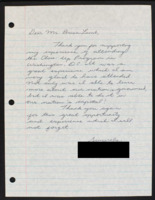 Dear Mr.
Thank you for supporting
my experience of attending
the Close Up Program in
Washington. It all was a
good experience which I am
very glad to have attended
Not only was it able to learn
more about our nation's government,
but it was able to do it in
our nation's capital!
Thank you again
for this great opportunity
and experience which I will
not forget.
Sincerely,